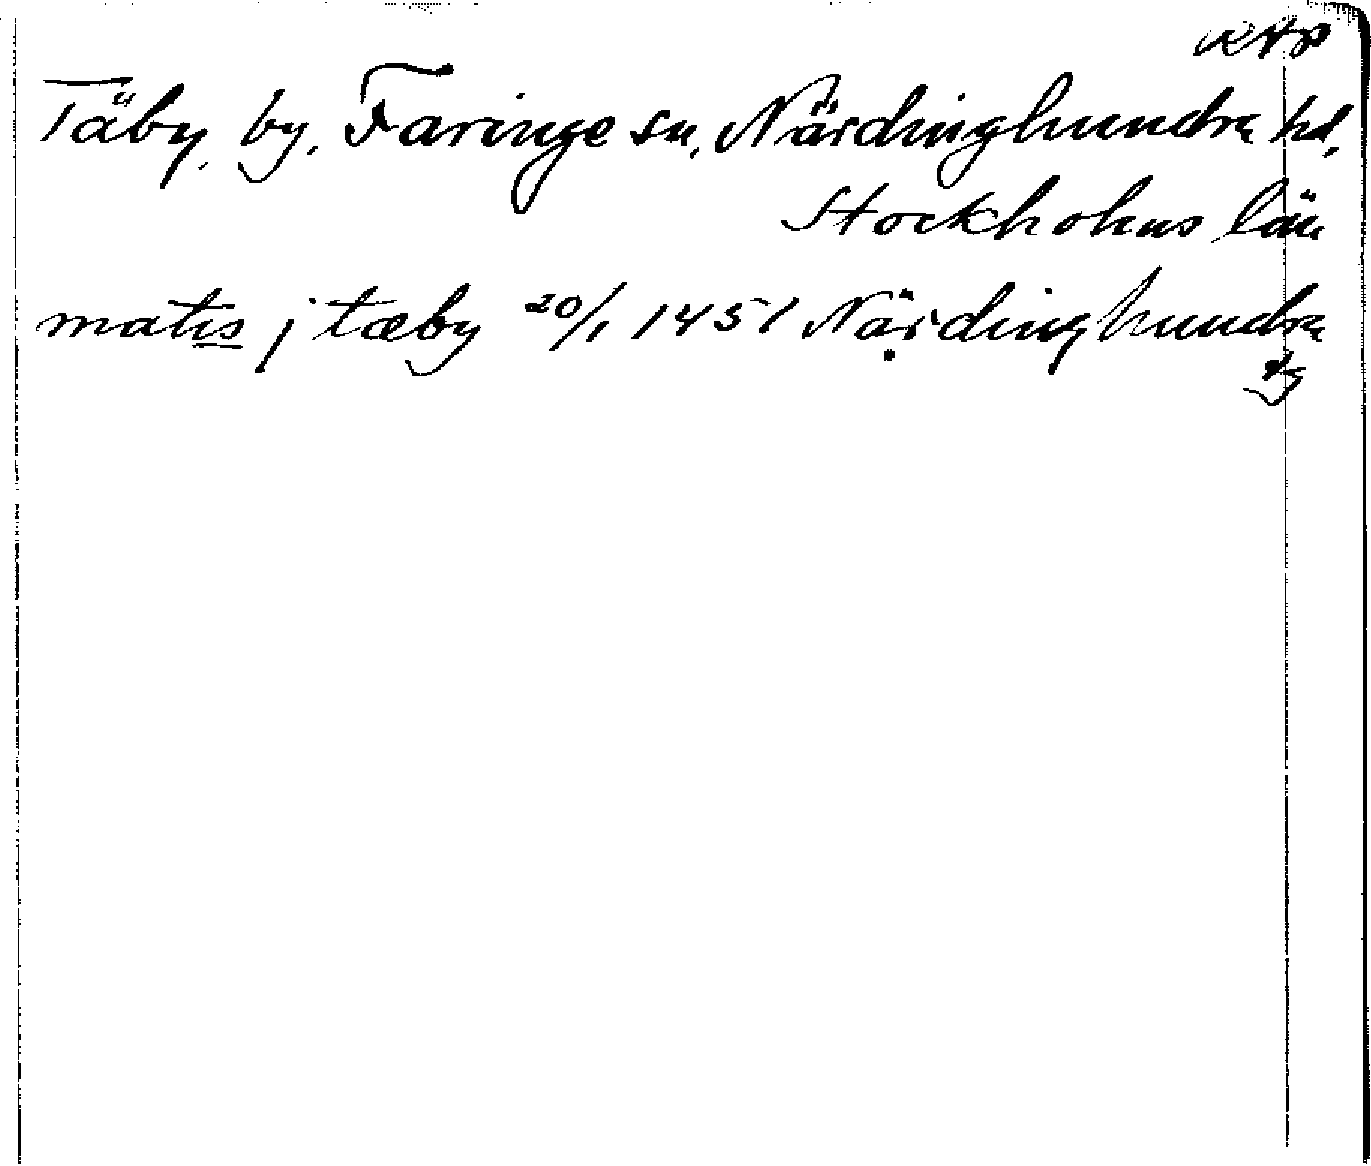 Täby, by, Faringe sn, Närdinghundra hd,
Stockholms län
matis j tæby 20/1 1451 Närdinghundra